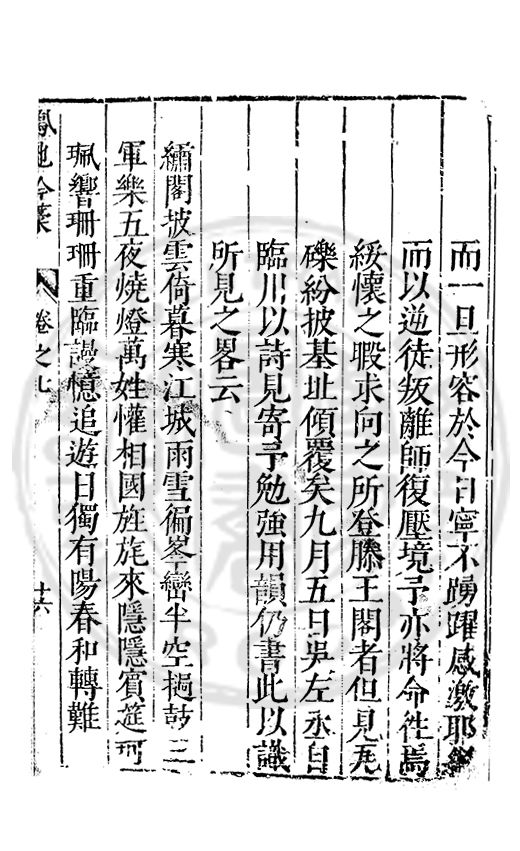 而一旦形容於今日寧不踴躍感激耶
而以逆徒叛離師復壓境予亦將命徃焉
綏懷之暇求向之所登滕王閣者但見瓦
礫紛披基址傾覆矣九月五日吳左丞自
臨川以詩見寄予勉強用韻仍書此以識
所見之畧云
繡閣披雲倚暮寒江城雨雪徧峯巒半空撾鼓三
軍樂五夜燒燈萬姓懽相國旌旄來隱隱賓筵珂
珮響珊珊重臨謾憶追遊日獨有陽春和轉難
鳳池吟藁
卷之七
十六